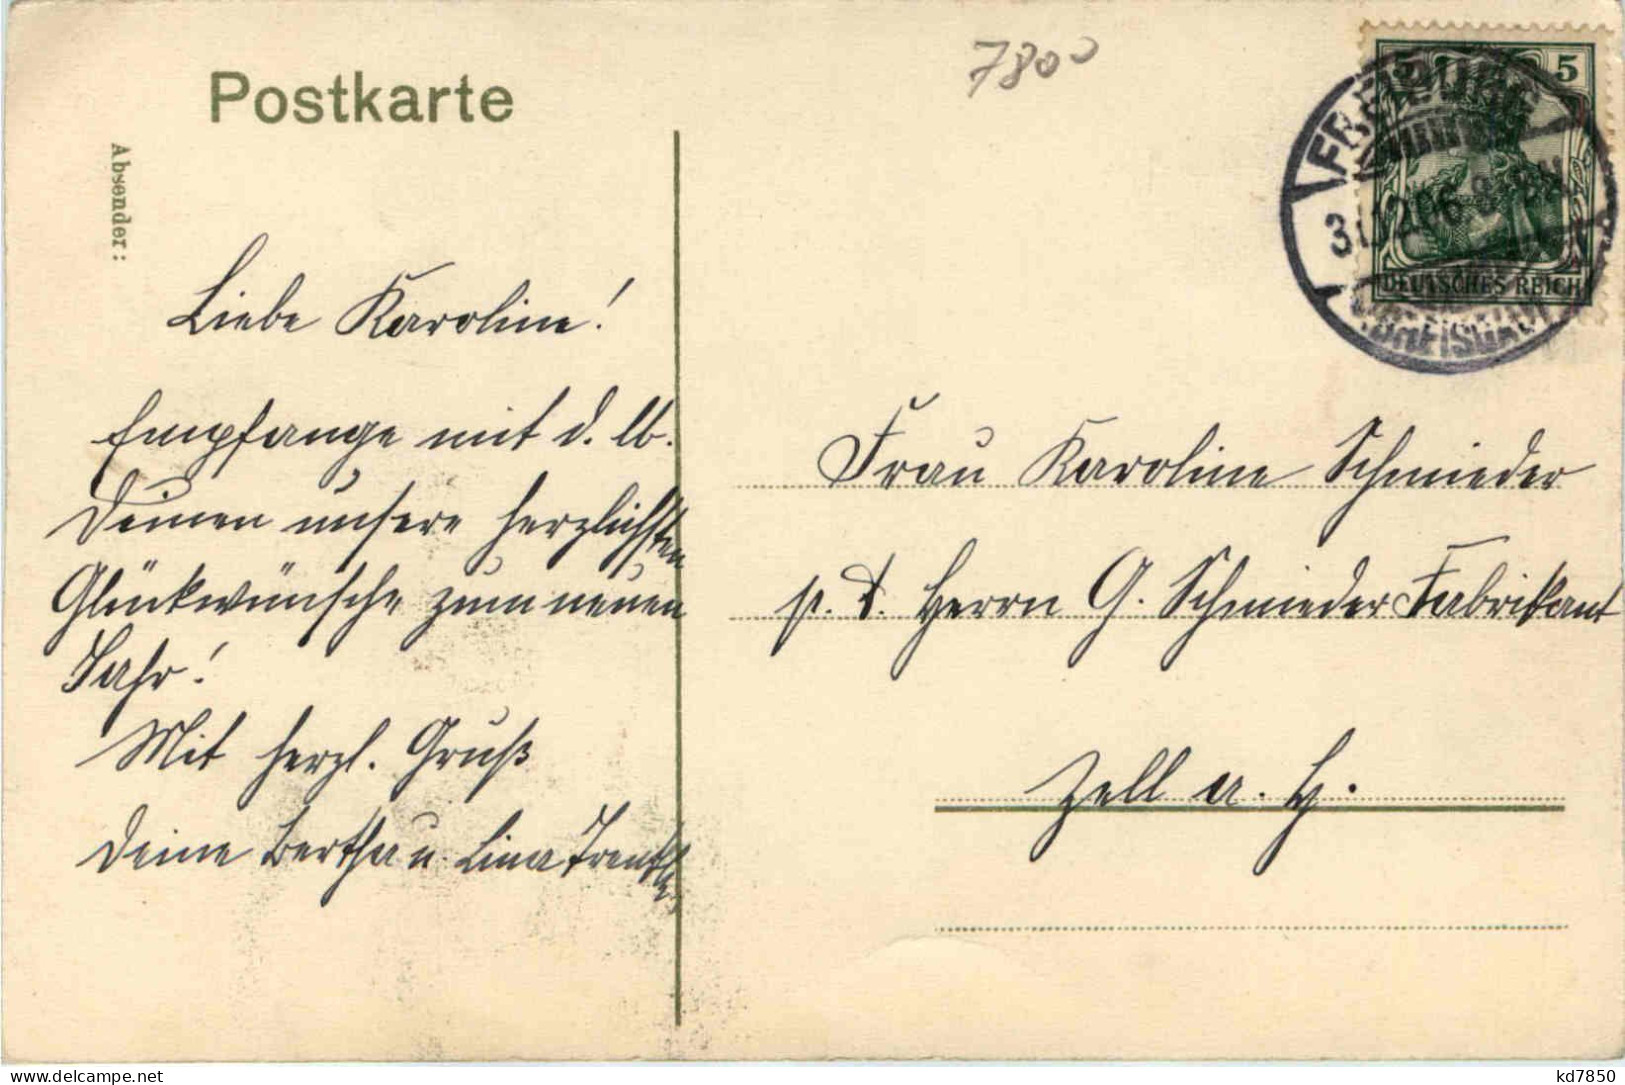 Postkarte
7800
Absender:
5
FREIBURG
31.12.06.8-9
(BREISGAU)
DEUTSCHES REICH
Liebe Karoline!
Empfange mit d. lb.
Deinen unsere herzlichsten
Glückwünsche zum neuen
Jahr!
Mit herzl. Gruß
Deine Bertha u. Lina
Frau Karoline Schmieder
p. A. Herrn G. Schmieder Fabrikant
Zell a. H.
kd7850